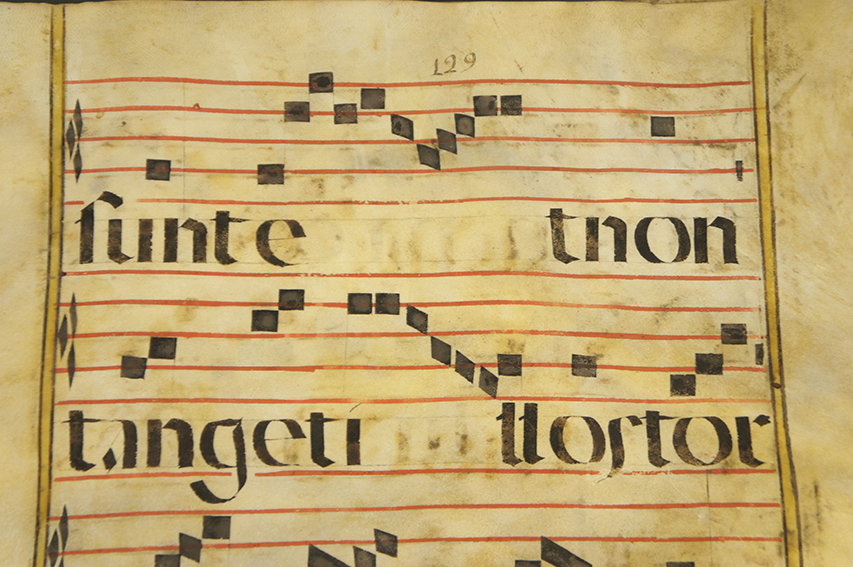 129
ſunt e tnon
tangeti lloſtor